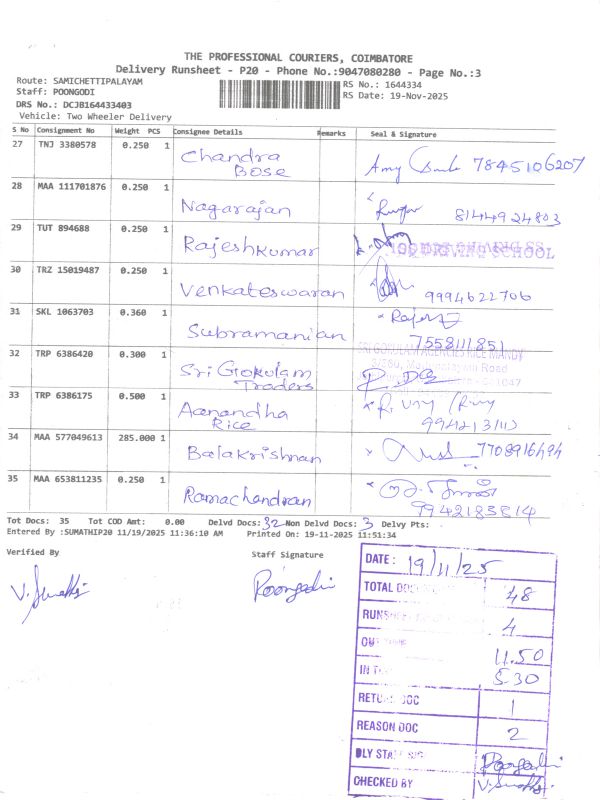 THE PROFESSIONAL COURIERS, COIMBATORE
Delivery Runsheet - P20 - Phone No.:9047080280 - Page No.:3
Route: SAMICHETTIPALAYAM
Staff: POONGODI
DRS No.: DCJB164433403
Vehicle: Two Wheeler Delivery
RS No.: 1644334
RS Date: 19-Nov-2025
S No Consignment No Weight PCS Consignee Details Remarks Seal & Signature
27 TNJ 3380578 0.250 1 Chandra Bose 7845106207
28 MAA 111701876 0.250 1 Nagarajan 8144924803
29 TUT 894688 0.250 1 Rajeshkumar DRIVING SCHOOL
30 TRZ 15019487 0.250 1 Venkateswaran 9994622706
31 SKL 1063703 0.360 1 Subramanian 7558111851
32 TRP 6386420 0.300 1 Sri Gokulam Traders SRI GOKULAM AGENCIES RICE MANDY
33 TRP 6386175 0.500 1 Aanandha Rice
34 MAA 577049613 285.000 1 Balakrishnan 7708916494
35 MAA 653811235 0.250 1 Ramachandran 9942183814
Tot Docs: 35 Tot COD Amt: 0.00 Delvd Docs: 32 Non Delvd Docs: 3 Delvy Pts:
Entered By :SUMATHIP20 11/19/2025 11:36:10 AM Printed On: 19-11-2025 11:51:34
Verified By Staff Signature
V. Sumathi Poongodi
DATE: 19/11/25
TOTAL DOC 48
RUNSHEET 4
OUT 11.50
IN 5.30
RETU DOC 1
REASON DOC 2
DLY STAFF SIG Poongodi
CHECKED BY V. Sumathi